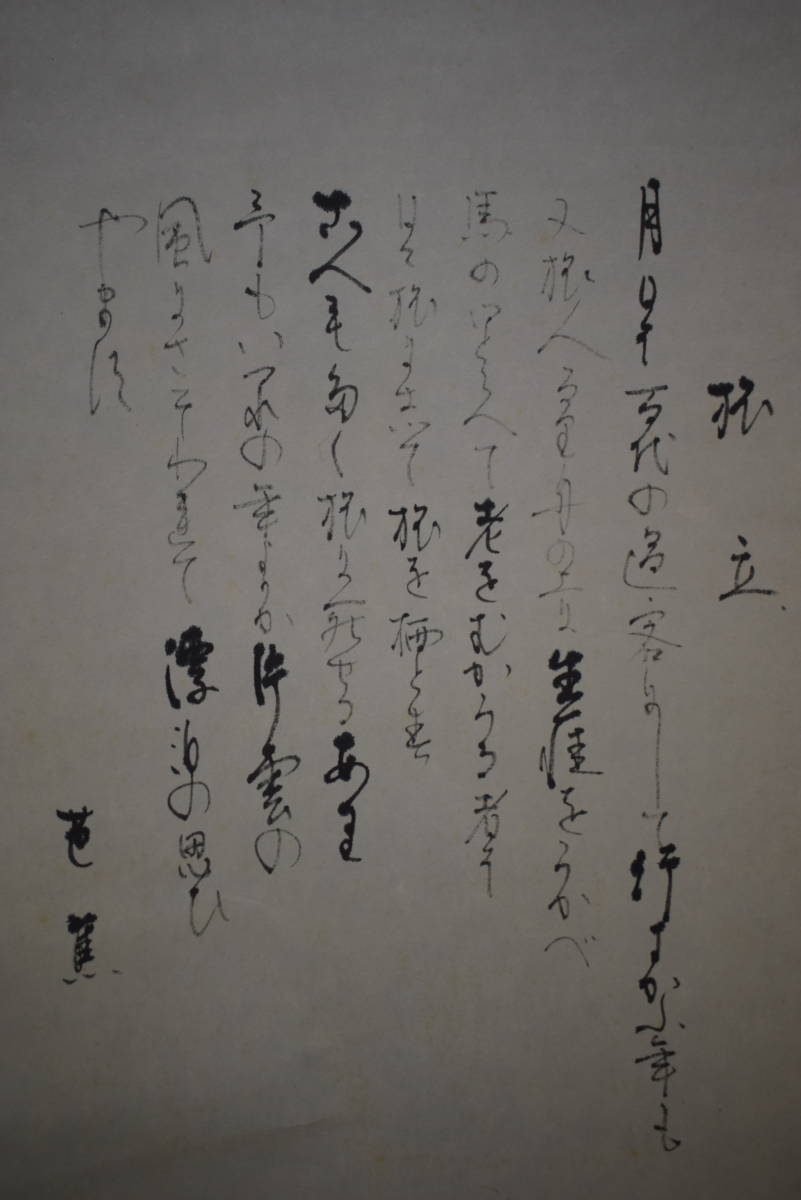 旅立
月日は百代の過客にして行かふ年も
又旅人なり舟の上に生涯をうかべ
馬の口とらへて老をむかふる者は
日々旅にして旅を栖とす
古人も多く旅に死せるあり
予もいづれの年よりか片雲の
風にさそはれて漂泊の思ひ
やまず
芭蕉